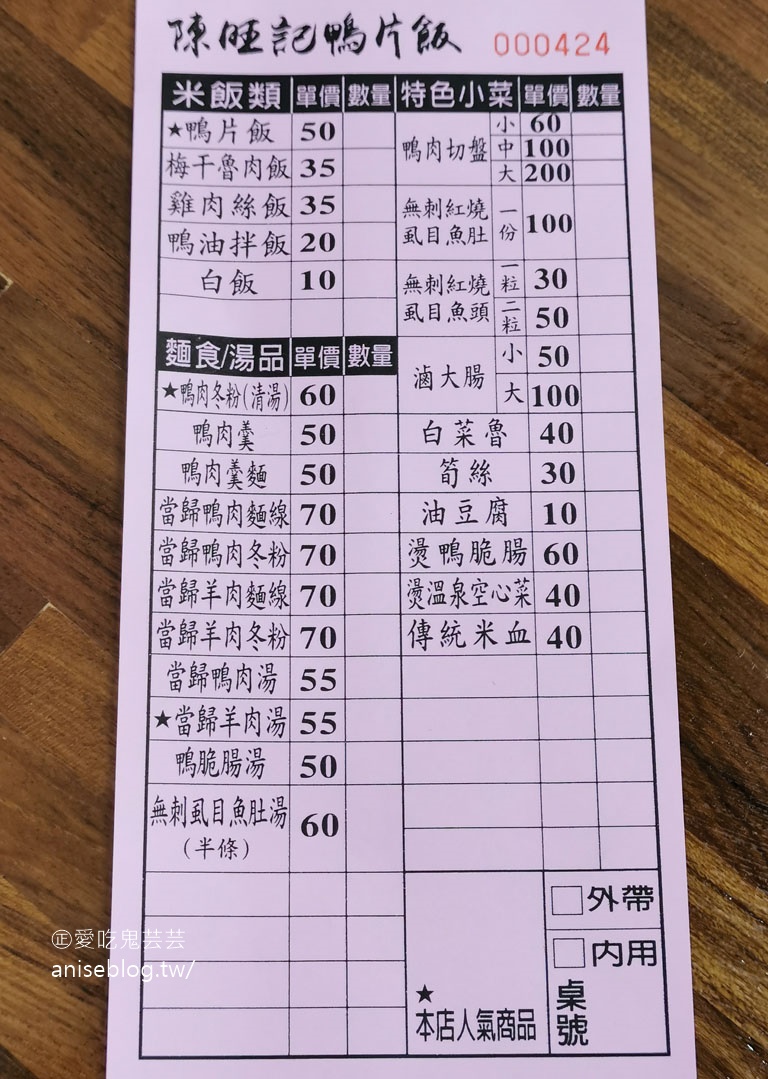 陳旺記鴨片飯 000424
米飯類 單價 數量
★鴨片飯 50
梅干魯肉飯 35
雞肉絲飯 35
鴨油拌飯 20
白飯 10
麵食/湯品 單價 數量
★鴨肉冬粉(清湯) 60
鴨肉羹 50
鴨肉羹麵 50
當歸鴨肉麵線 70
當歸鴨肉冬粉 70
當歸羊肉麵線 70
當歸羊肉冬粉 70
當歸鴨肉湯 55
★當歸羊肉湯 55
鴨脆腸湯 50
無刺虱目魚肚湯 60
(半條)
特色小菜 單價 數量
鴨肉切盤 小 60
中 100
大 200
無刺紅燒
虱目魚肚 一份 100
無刺紅燒
虱目魚頭 一粒 30
二粒 50
滷大腸 小 50
大 100
白菜魯 40
筍絲 30
油豆腐 10
燙鴨脆腸 60
燙溫泉空心菜 40
傳統米血 40
★
本店人氣商品
□外帶
□內用
桌號
㊣愛吃鬼芸芸
aniseblog.tw/